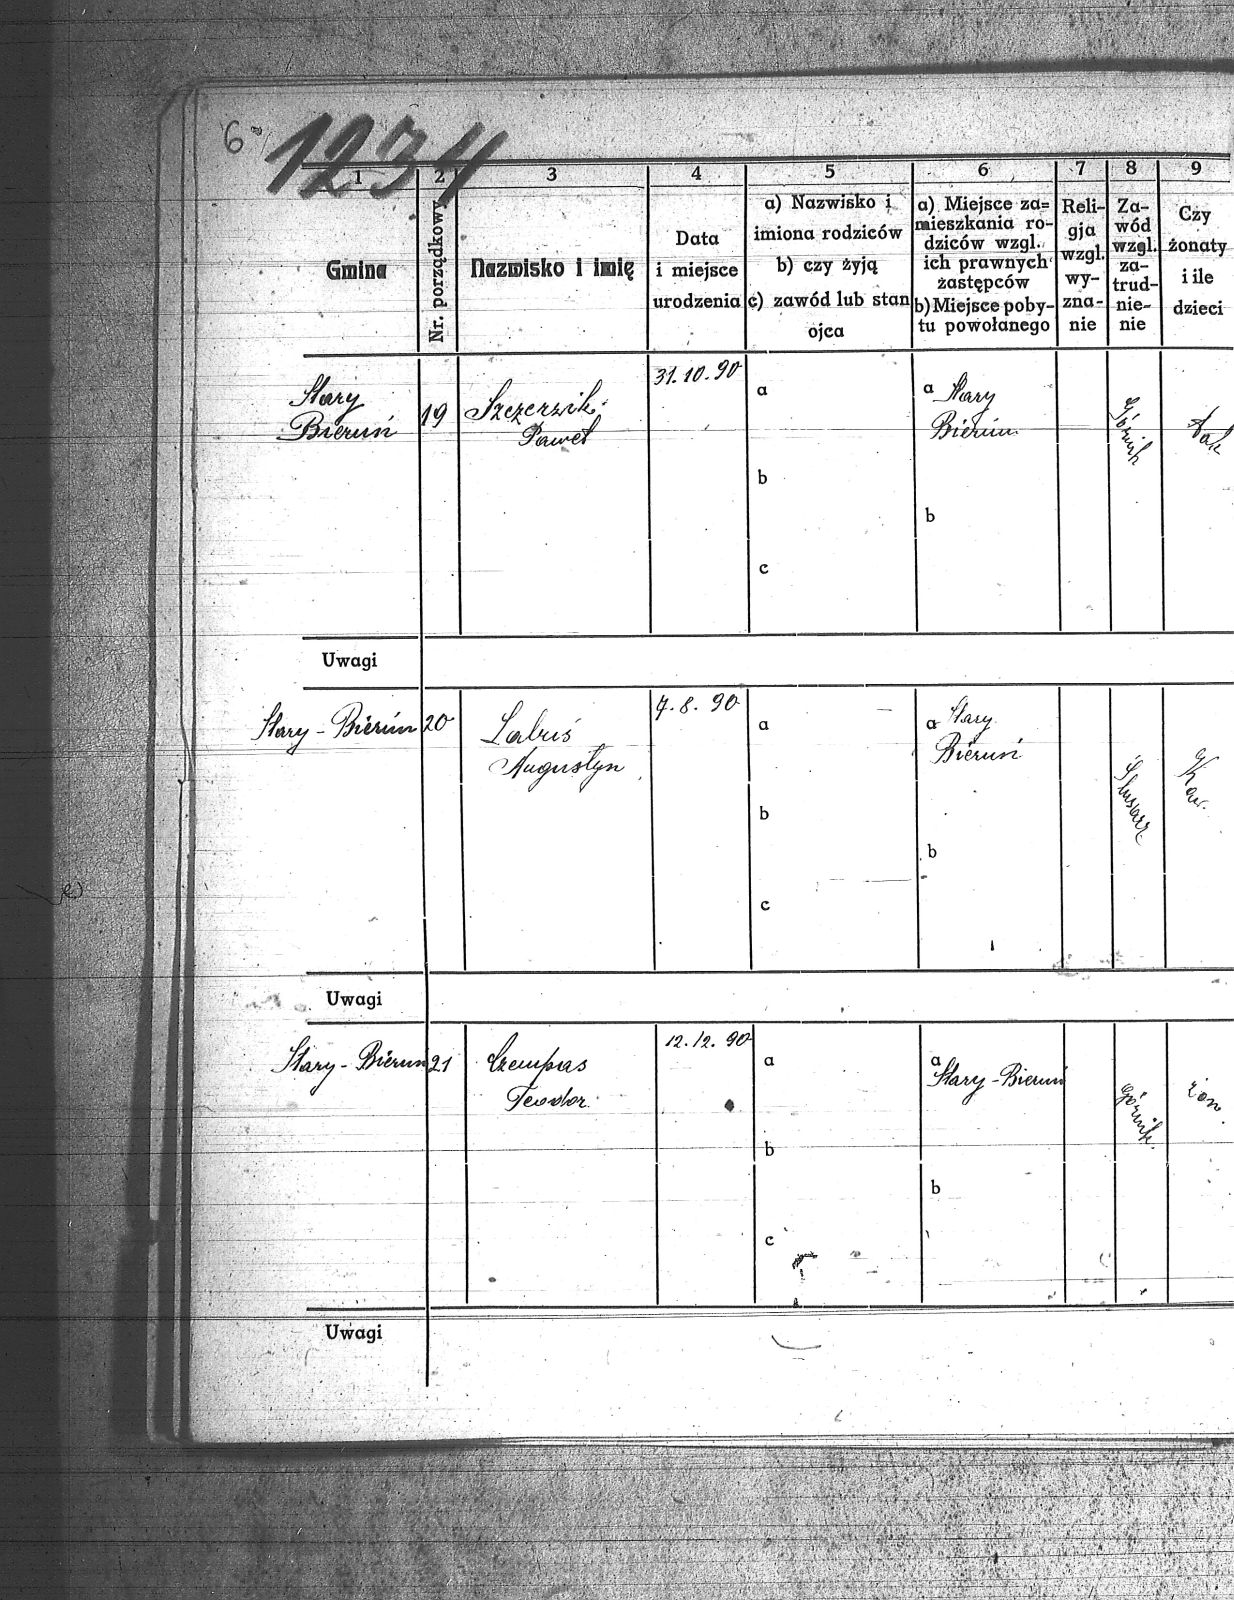 6
1234
1
2
3
4
5
6
7
8
9
Gmina
Nr. porządkowy
Nazwisko i imię
Data
i miejsce
urodzenia
a) Nazwisko i
imiona rodziców
b) czy żyją
c) zawód lub stan
ojca
a) Miejsce za=
mieszkania ro-
dziców wzgl.
ich prawnych
zastępców
b) Miejsce poby-
tu powołanego
Reli-
gja
wzgl.
wy-
zna-
nie
Za-
wód
wzgl.
za-
trud-
nie-
nie
Czy
żonaty
i ile
dzieci
Stary
Bieruń
19
Szczerzik
Paweł
31.10.90
a
b
c
a Stary
Bieruń
b
Górnik
tak
Uwagi
Stary - Bieruń
20
Labuś
Augustyn
7.8.90
a
b
c
a Stary
Bieruń
b
Ślusarz
Kaw.
Uwagi
Stary - Bieruń
21
Czempas
Teodor
12.12.90
a
b
c
a
Stary - Bieruń
b
Górnik
żon.
Uwagi